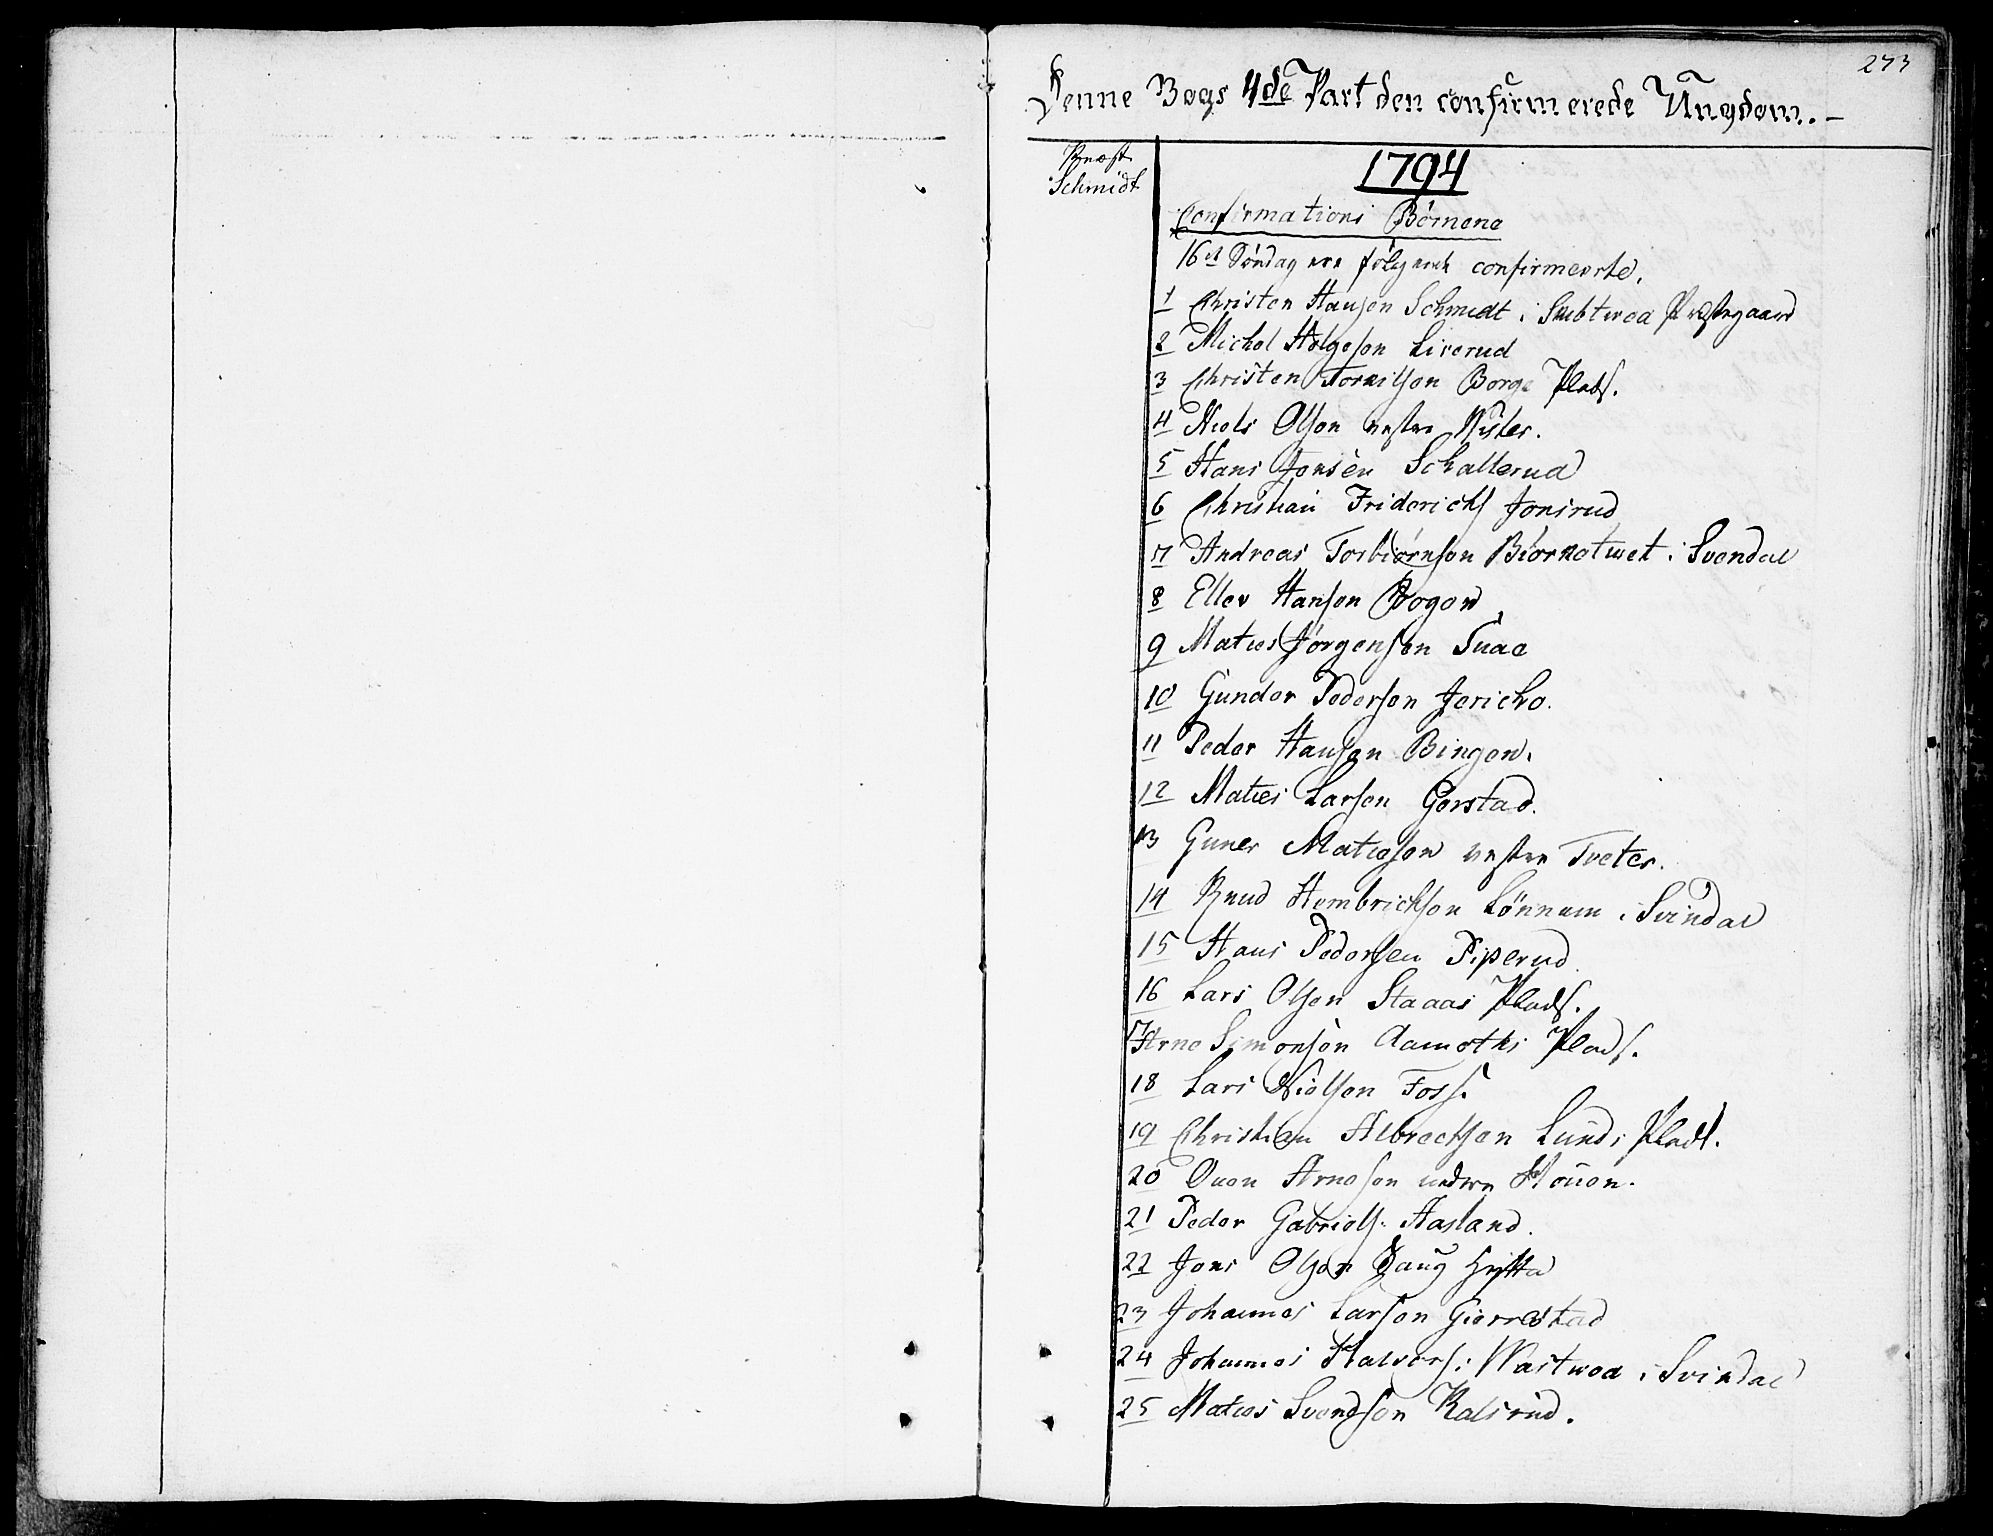 273
Denne Bogs 4de Part den confirmerede Ungdom.-
Præst
Schmidt
1794
Confirmations Børnene
16d Søndag ere følgende confirmeerte.
1 Christen Hansen Schmidt i Skibtwed Præstegaard
2 Michel Helgesen Liverud
3 Christen Torkilsen Borge Plads.
4 Niels Olsen vestre Wister.
5 Hans Jensen Schallerud
6 Christian Friderichs Jonsrud
7 Andreas Torbiørnsen Biørnetwet i Svendal
8 Ellev Hansen Bogen
9 Maties Jørgensen Tuae
10 Gunder Pedersen Jericho.
11 Peder Hansen Bingen.
12 Maties Larsen Gerstad.
13 Guner Matiesen vestre Tveter.
14 Knud Hembrichsen Lønnum i Svindal
15 Hans Pedersen Piperud
16 Lars Olsen Staaas Plads.
17 Arne Simonsen Aamoths Plads.
18 Lars Nielsen Foss.
19 Christian Albrechsen Lunds Plads.
20 Ouen Arnesen nedre Houen.
21 Peder Gabriels: Aasland.
22 Jens Olsen Haug Hytta
23 Johannes Larsen Gierrestad
24 Johannes Halvors: Wastwed i Svindal
25 Maties Svendsen Kalsrud.